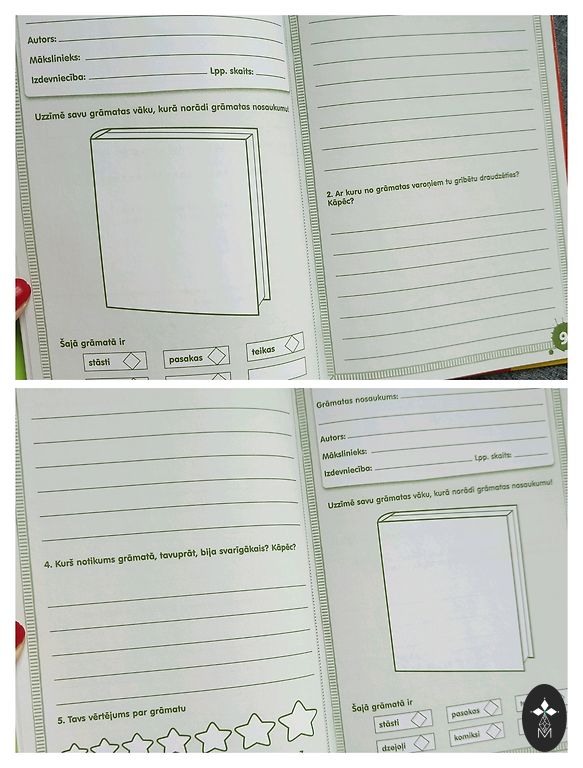 Autors:
Mākslinieks:
Izdevniecība: Lpp. skaits:
Uzzīmē savu grāmatas vāku, kurā norādi grāmatas nosaukumu!
Šajā grāmatā ir
stāsti pasakas teikas
2. Ar kuru no grāmatas varoņiem tu gribētu draudzēties?
Kāpēc?
9
4. Kurš notikums grāmatā, tavuprāt, bija svarīgākais? Kāpēc?
5. Tavs vērtējums par grāmatu
Grāmatas nosaukums:
Autors:
Mākslinieks:
Izdevniecība: Lpp. skaits:
Uzzīmē savu grāmatas vāku, kurā norādi grāmatas nosaukumu!
Šajā grāmatā ir
stāsti pasakas
dzejoļi komiksi
M